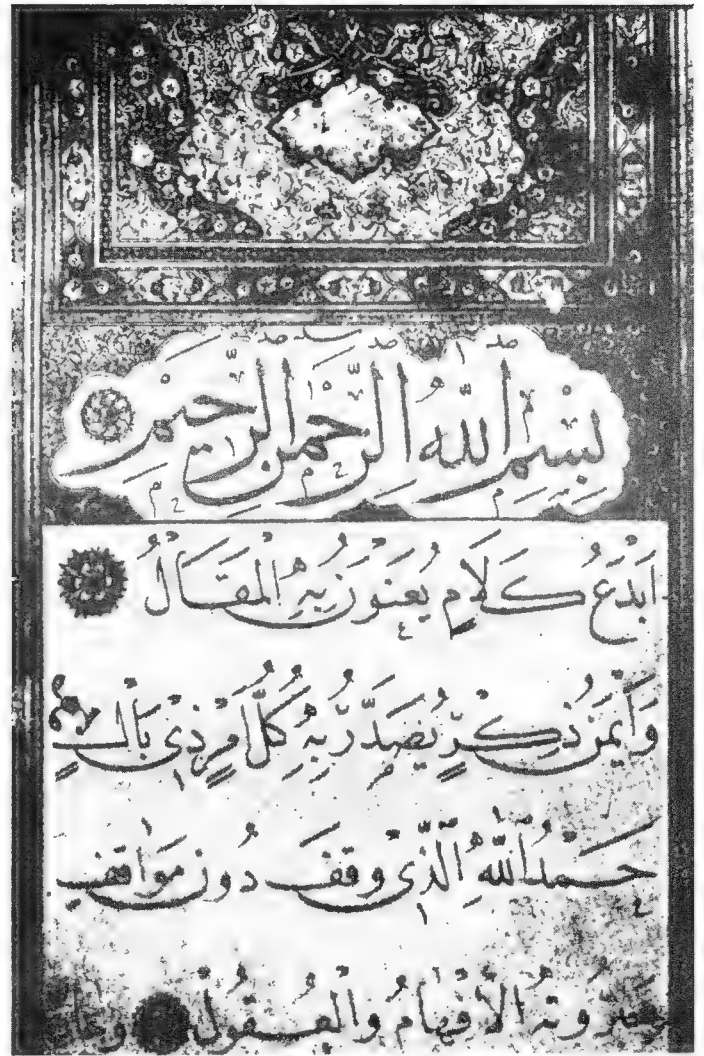 بِسْمِ اللّٰهِ الرَّحْمٰنِ الرَّحِيمِ
اَبْدَعُ كَلَامٍ يُعَنْوَنُ بِهِ الْمَقَالُ
وَاَيْمَنُ ذِكْرٍ يُصَدَّرُ بِهِ كُلُّ اَمْرٍ ذِي بَالٍ
حَمْدُ اللّٰهِ الَّذِي وَقَفَ دُونَ مَوَاقِفِ
الْاَفْهَامُ وَالْعُقُولُ